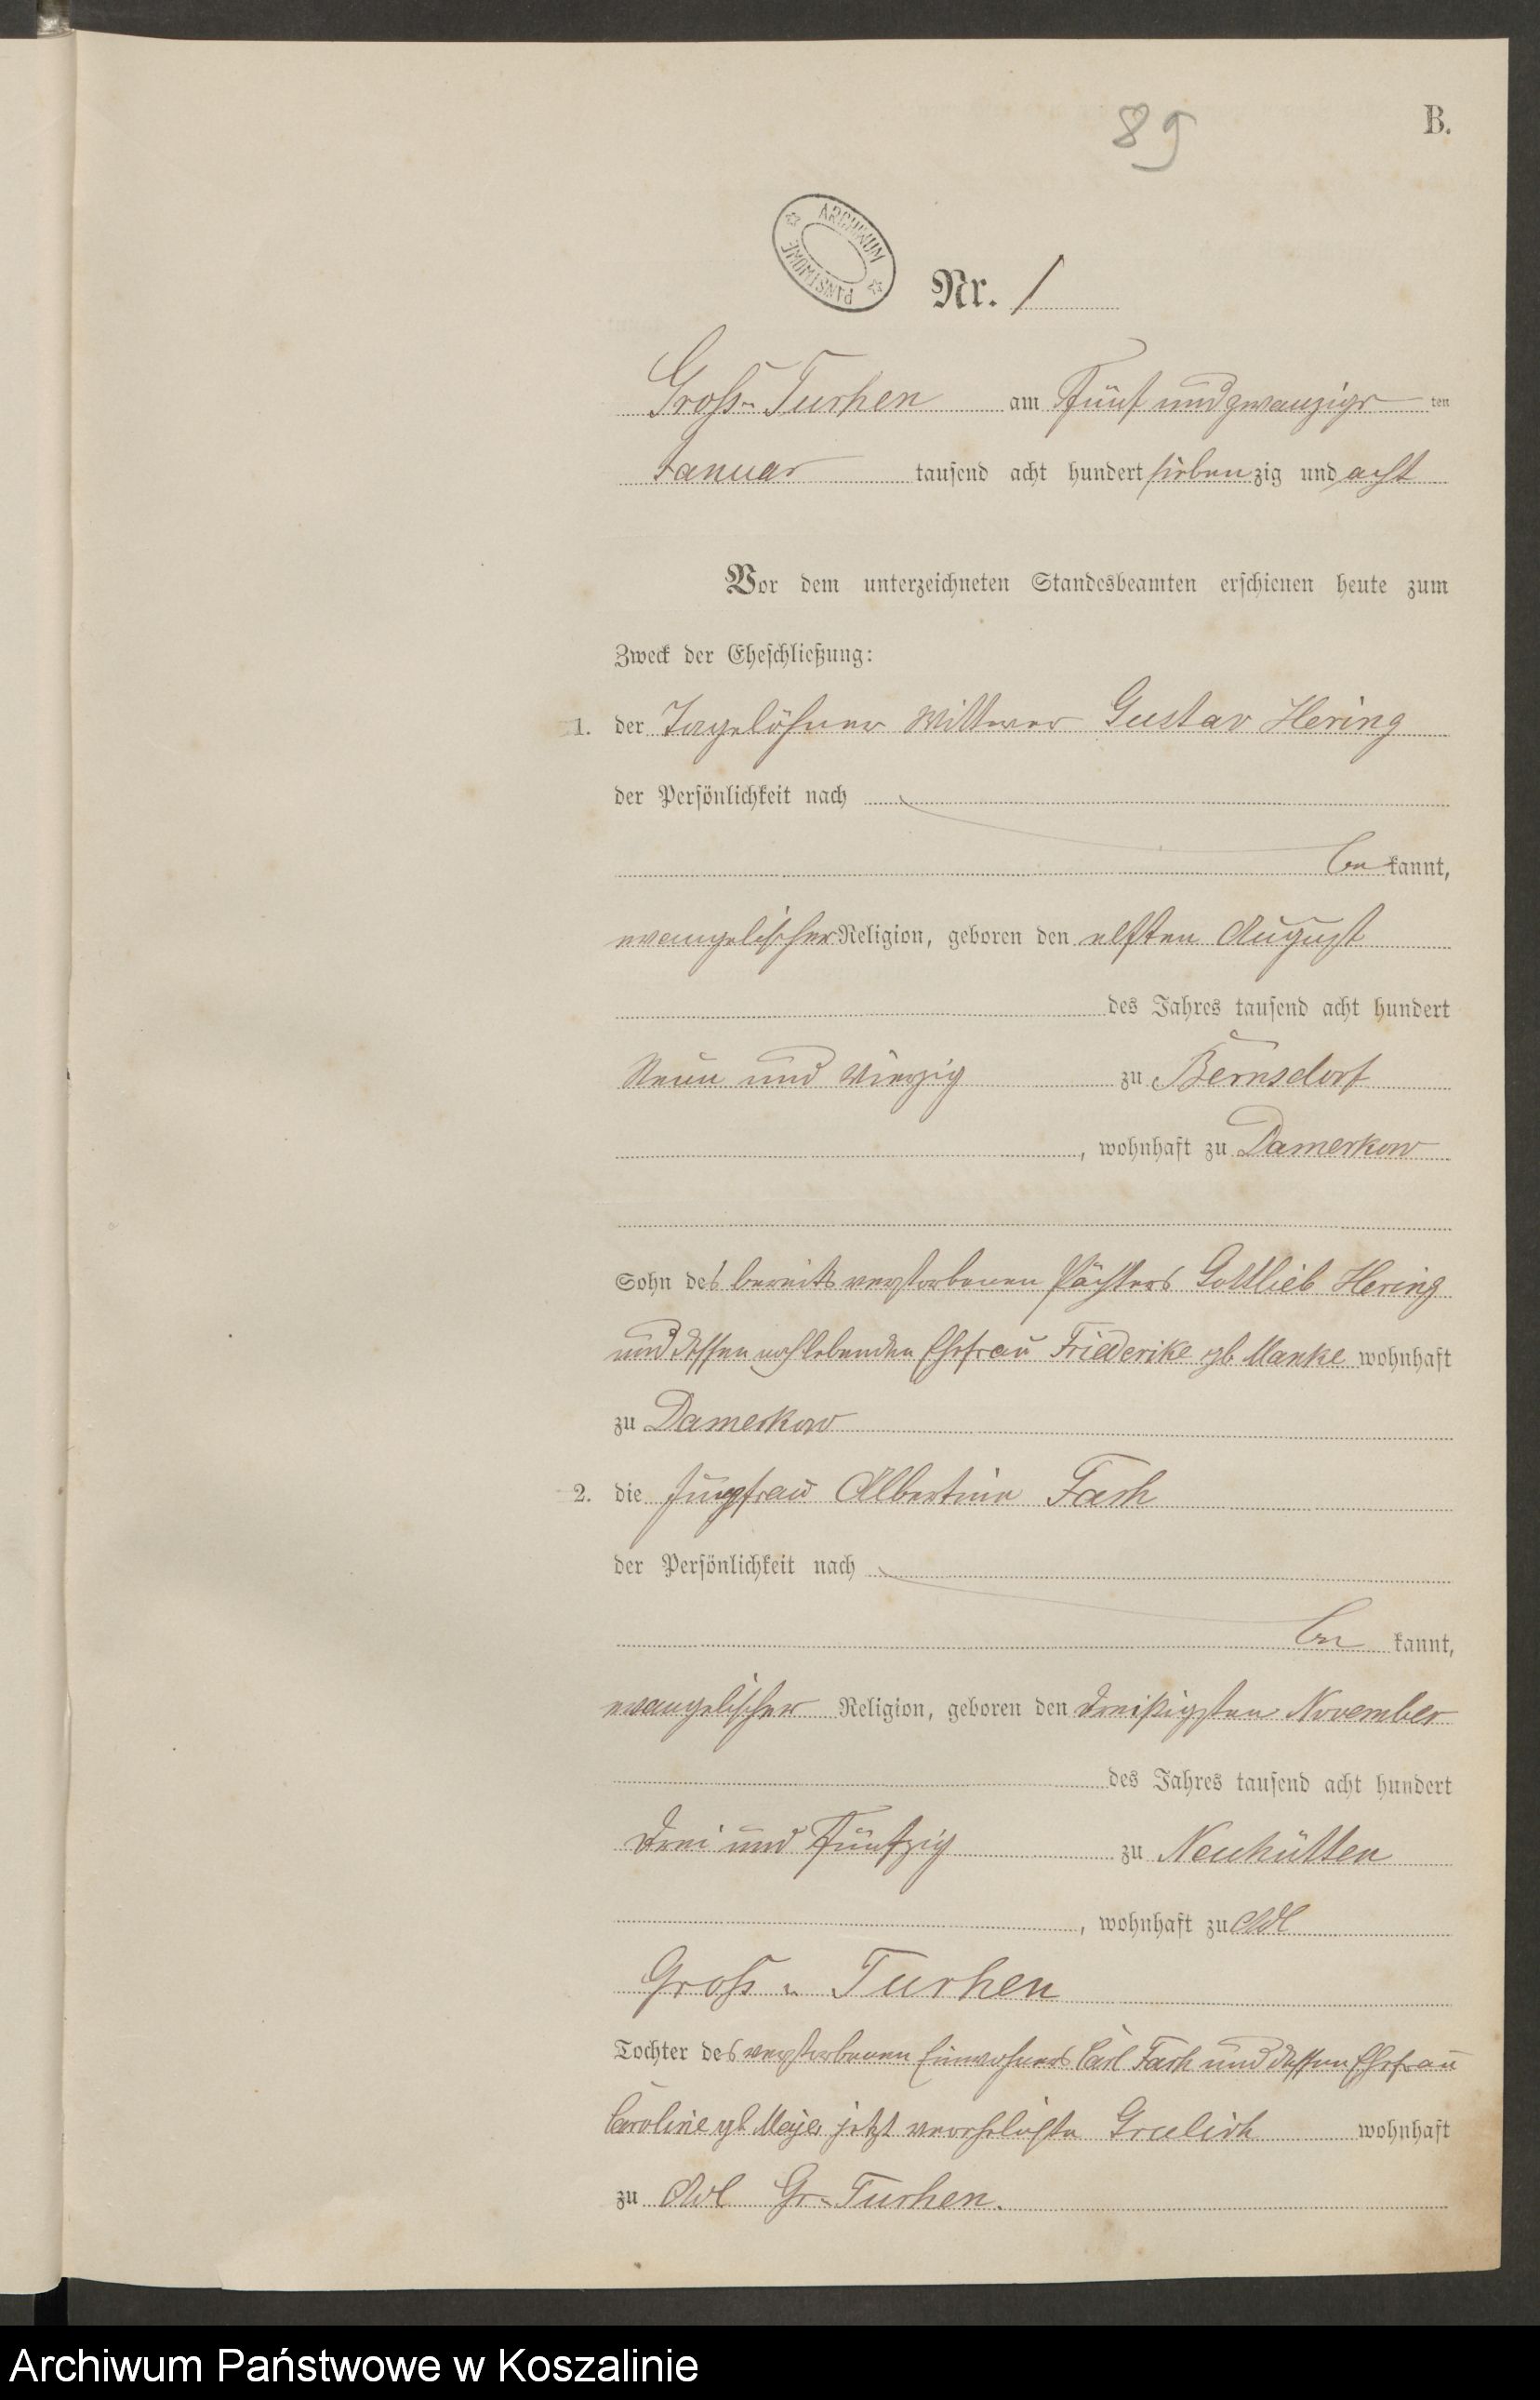 89
B.
ARCHIWUM PAŃSTWOWE
Nr. 1
Gross-Tuchen am Fünf und zwanzigs ten
Januar tausend acht hundert sieben zig und acht
Vor dem unterzeichneten Standesbeamten erschienen heute zum
Zweck der Eheschließung:
1. der Tagelöhner Wittwer Gustav Hering
der Persönlichkeit nach
be kannt,
evangelischer Religion, geboren den elften August
des Jahres tausend acht hundert
Neun und Vierzig zu Bernsdorf
, wohnhaft zu Damerkow
Sohn des bereits verstorbenen Pächters Gottlieb Hering
und dessen noch lebenden Ehefrau Friederike gb Manke wohnhaft
zu Damerkow
2. die Jungfrau Albertine
der Persönlichkeit nach
be kannt,
evangelischer Religion, geboren den dreißigsten November
des Jahres tausend acht hundert
drei und Fünfzig zu Neuhütten
, wohnhaft zu Adl
Gross-Tuchen
Tochter des verstorbenen Einwohners Carl und dessen Ehefrau
Caroline gb Meyer jetzt verehelichte wohnhaft
zu Adl Gr-Tuchen.
Archiwum Państwowe w Koszalinie